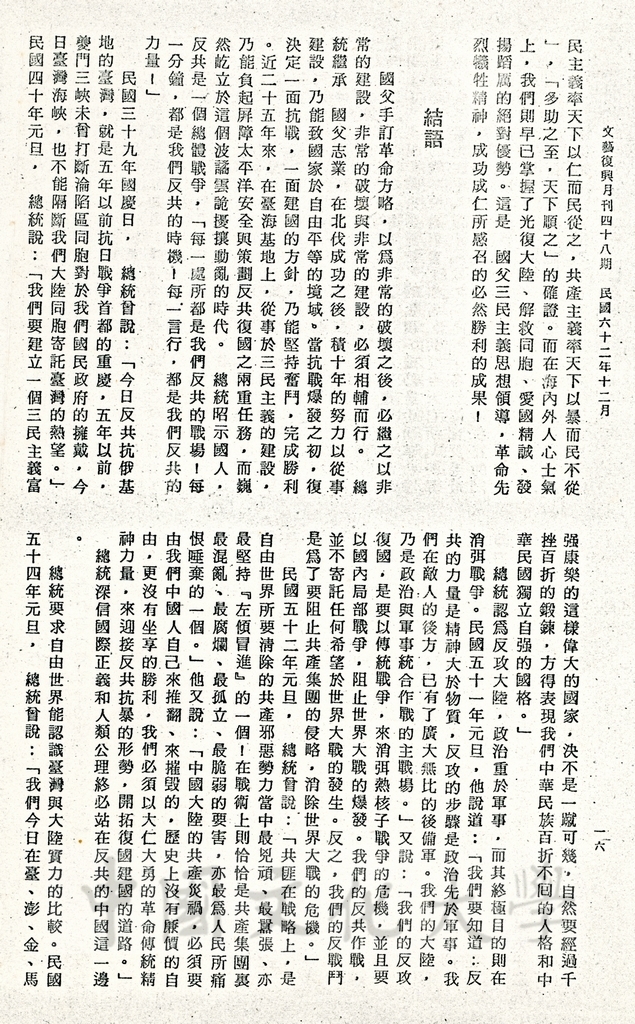 文藝復興月刊四十八期　民國六十二年十二月
民主義率天下以仁而民從之，共產主義率天下以暴而民不從
」，「多助之至，天下順之」的確證。而在海內外人心士氣
上，我們則早已掌握了光復大陸、解救同胞、愛國精誠、發
揚踔厲的絕對優勢。這是　國父三民主義思想領導，革命先
烈犧牲精神，成功成仁所感召的必然勝利的成果！
結語
國父手訂革命方略，以爲非常的破壞之後，必繼之以非
常的建設，非常的破壞與非常的建設，必須相輔而行。　總
統繼承　國父志業，在北伐成功之後，積十年的努力以從事
建設，乃能致國家於自由平等的境域。當抗戰爆發之初，復
決定一面抗戰，一面建國的方針，乃能堅持奮鬥，完成勝利
。近二十五年來，在臺海基地上，從事於三民主義的建設，
乃能負起屏障太平洋安全與策劃反共復國之兩重任務，而巍
然屹立於這個波譎雲詭擾攘動亂的時代。　總統昭示國人，
反共是一個總體戰爭，「每一處所都是我們反共的戰場！每
一分鐘，都是我們反共的時機！每一言行，都是我們反共的
力量！」
民國三十九年國慶日，　總統曾說：「今日反共抗俄基
地的臺灣，就是五年以前抗日戰爭首都的重慶，五年以前，
夔門三峽未曾打斷淪陷區同胞對於我們國民政府的擁戴，今
日臺灣海峽，也不能隔斷我們大陸同胞寄託臺灣的熱望。」
民國四十年元旦，　總統說：「我們要建立一個三民主義富
强康樂的這樣偉大的國家，決不是一蹴可幾，自然要經過千
挫百折的鍛鍊，方得表現我們中華民族百折不回的人格和中
華民國獨立自强的國格。」
總統認爲反攻大陸，政治重於軍事，而其終極目的則在
消弭戰爭。民國五十一年元旦，他說道：「我們要知道：反
共的力量是精神大於物質，反攻的步驟是政治先於軍事。我
們在敵人的後方，已有了廣大無比的後備軍。我們的大陸，
乃是政治與軍事統合作戰的主戰場。」又說：「我們的反攻
復國，是要以傳統戰爭，來消弭熱核子戰爭的危機，並且要
以國內局部戰爭，阻止世界大戰的爆發。我們的反共作戰，
並不寄託任何希望於世界大戰的發生。反之，我們的反戰鬥
是爲了要阻止共產集團的侵略，消除世界大戰的危機。」
民國五十二年元旦，　總統曾說：「共匪在戰略上，是
自由世界所要清除的共產邪惡勢力當中最兇頑、最囂張、亦
最堅持『左傾冒進』的一個！在戰術上則恰恰是共產集團裏
最混亂、最腐爛、最孤立、最脆弱的要害，亦最爲人民所痛
恨唾棄的一個。」他又說：「中國大陸的共產災禍，必須要
由我們中國人自己來推翻、來摧毀的，歷史上沒有廉價的自
由，更沒有坐享的勝利，我們必須以大仁大勇的革命傳統精
神力量，來迎接反共抗暴的形勢，開拓復國建國的道路。」
總統深信國際正義和人類公理終必站在反共的中國這一邊
。
總統要求自由世界能認識臺灣與大陸實力的比較。民國
五十四年元旦，　總統曾說：「我們今日在臺、澎、金、馬
一六
中國文化大學